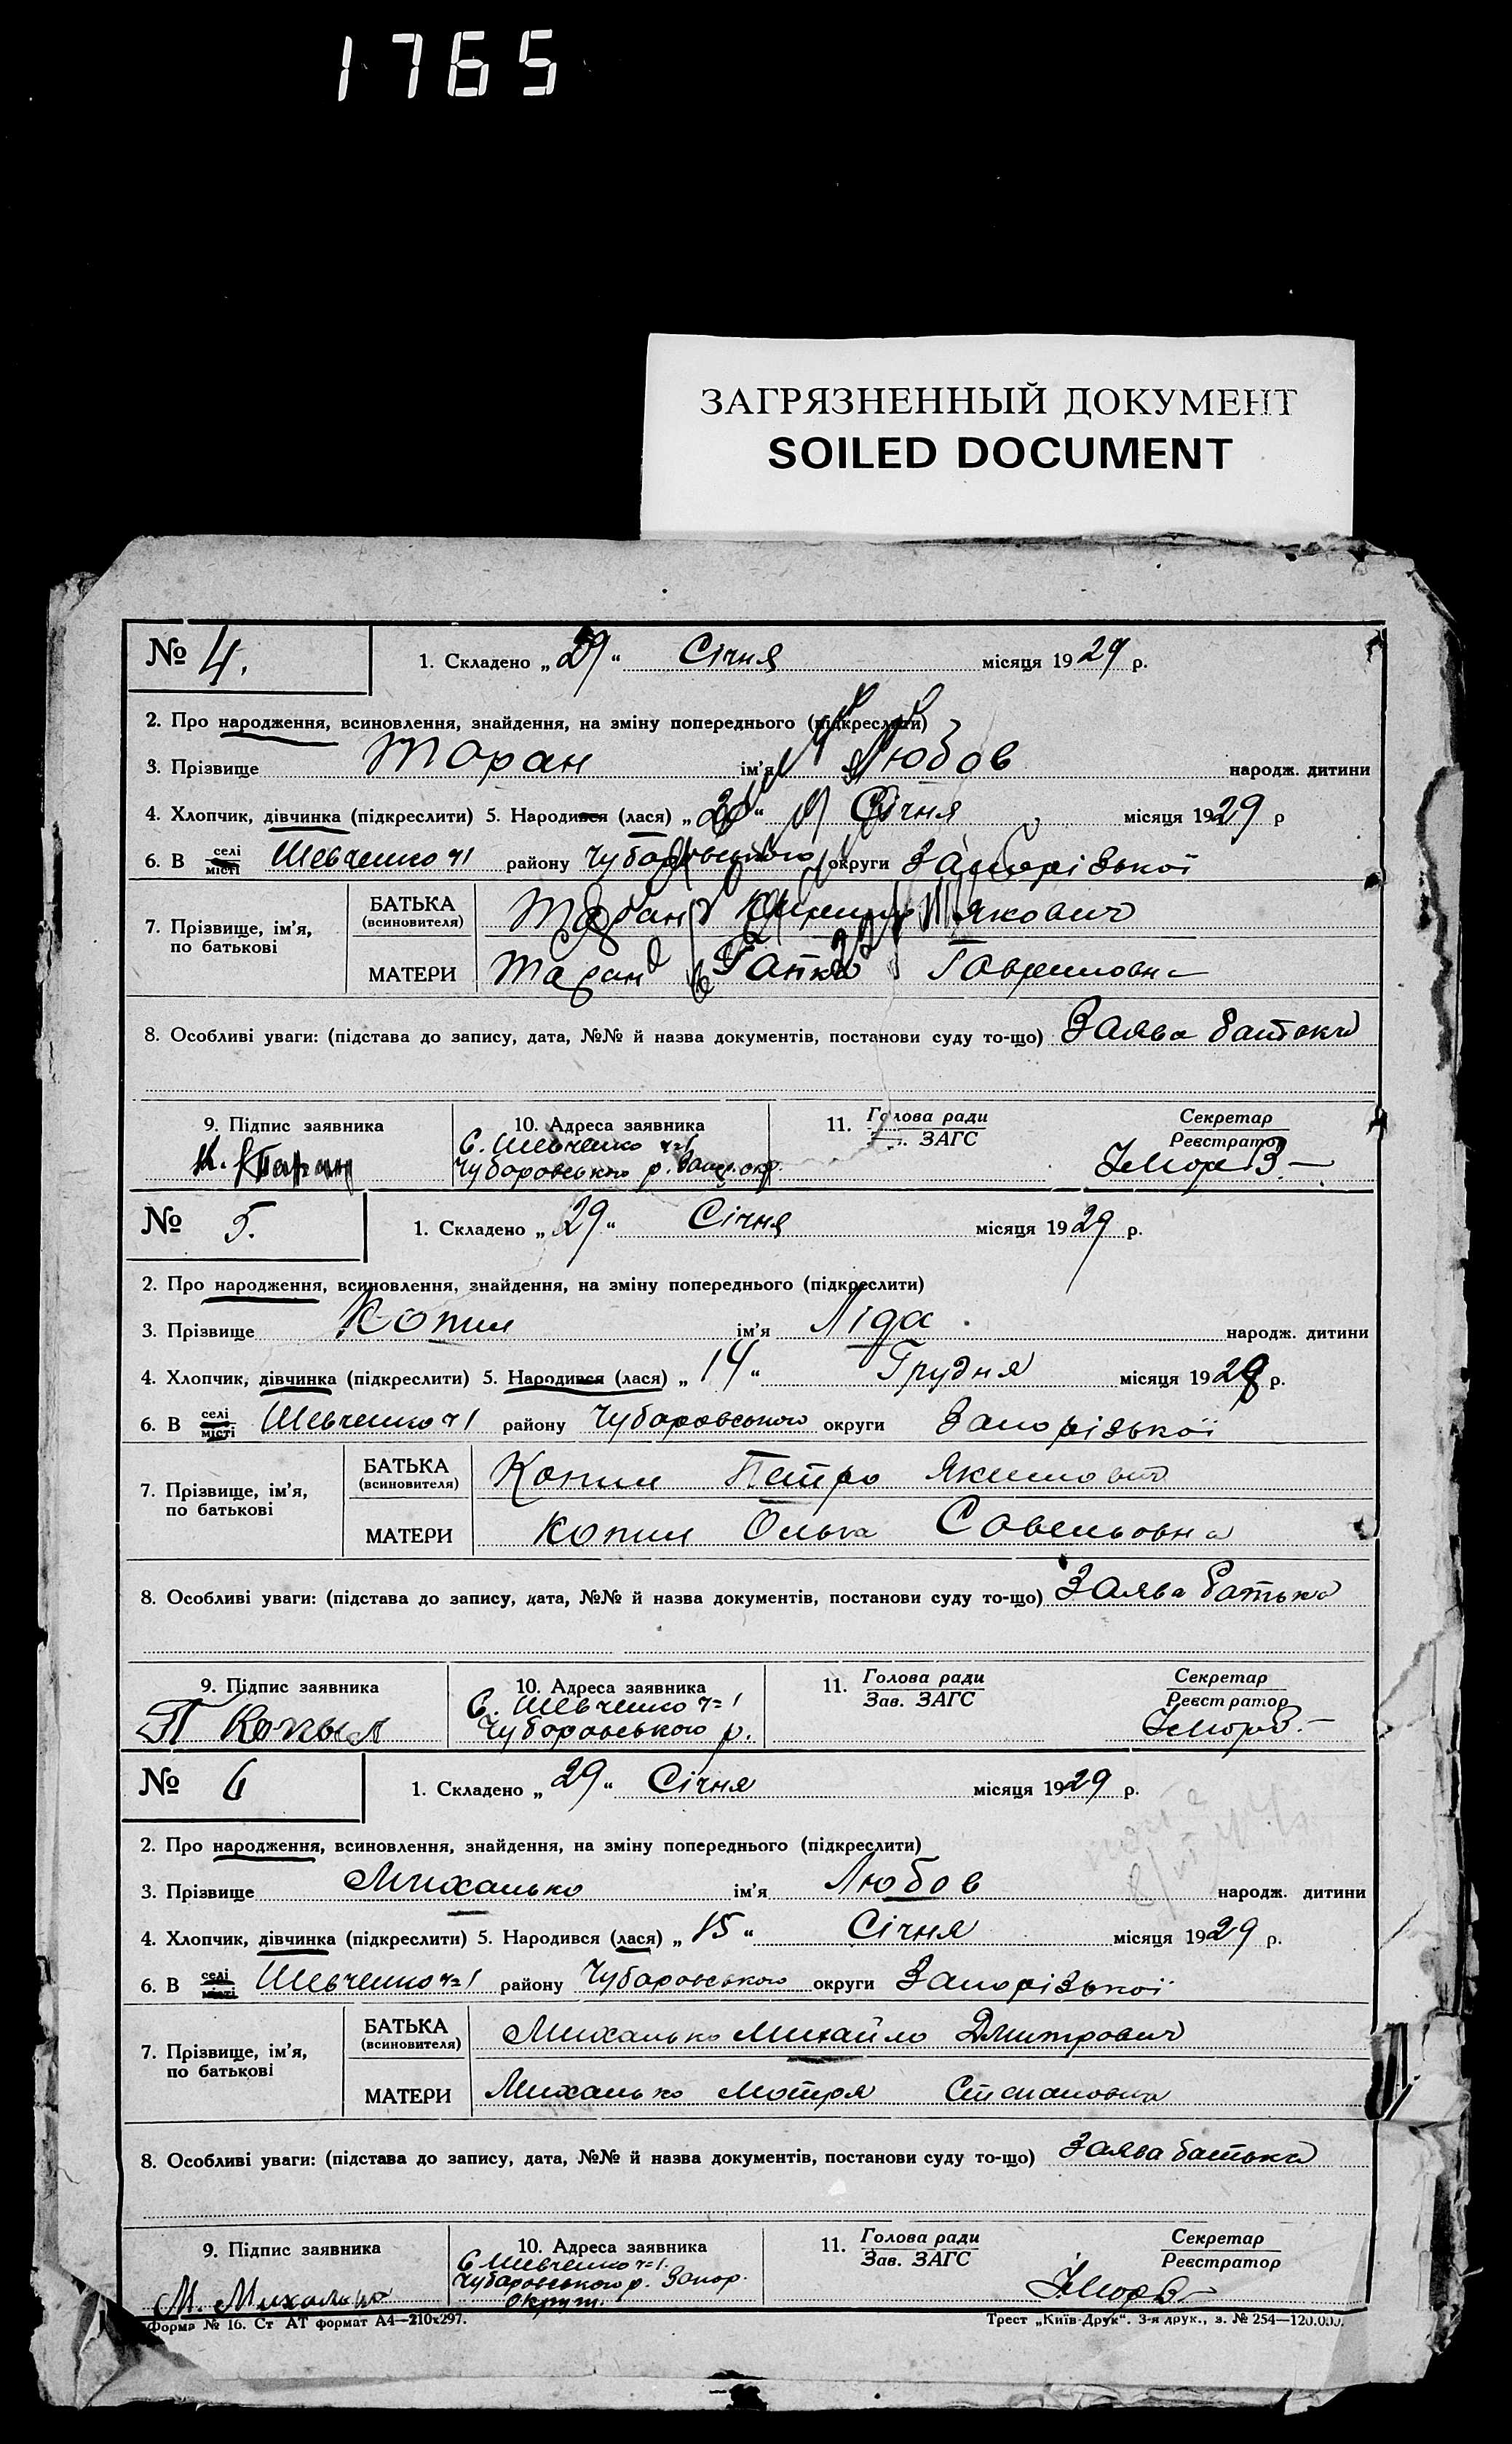 1765
ЗАГРЯЗНЕННЫЙ ДОКУМЕНТ
SOILED DOCUMENT
№ 4. 1. Складено „29“ Січня місяця 1929 р.
2. Про народження, всиновлення, знайдення, на зміну попереднього (підкреслити)
3. Прізвище Таран ім'я Любов народж. дитини
4. Хлопчик, дівчинка (підкреслити) 5. Народився (лася) „ “ Січня місяця 1929 р
6. В селі місті Шевченко ч1 району Чубаровського округи Запорізької
7. Прізвище, ім'я, по батькові
БАТЬКА (всиновителя) Таран Якович
МАТЕРИ Таран Гапка Гавриловна
8. Особливі уваги: (підстава до запису, дата, №№ й назва документів, постанови суду то-що) Заява батька
9. Підпис заявника 10. Адреса заявника 11. Голова ради Секретар
Зав. ЗАГС Реєстратор
С. Шевченко ч=1
К. Таран Чубаровського р. Запор. окр.
№ 5. 1. Складено „29“ Січня місяця 1929 р.
2. Про народження, всиновлення, знайдення, на зміну попереднього (підкреслити)
3. Прізвище Копил ім'я Ліда. народж. дитини
4. Хлопчик, дівчинка (підкреслити) 5. Народився (лася) „14“ Грудня місяця 1928 р.
6. В селі місті Шевченко ч1 району Чубаровського округи Запорізької
7. Прізвище, ім'я, по батькові
БАТЬКА (всиновителя) Копил Петро Якимович
МАТЕРИ Копил Олька Савельовна
8. Особливі уваги: (підстава до запису, дата, №№ й назва документів, постанови суду то-що) Заява батька
9. Підпис заявника 10. Адреса заявника 11. Голова ради Секретар
Зав. ЗАГС Реєстратор
С. Шевченко ч=1
П Копыл Чубаровського р.
№ 6 1. Складено „29“ Січня місяця 1929 р.
2. Про народження, всиновлення, знайдення, на зміну попереднього (підкреслити)
3. Прізвище Михалько ім'я Любов народж. дитини
4. Хлопчик, дівчинка (підкреслити) 5. Народився (лася) „15“ Січня місяця 1929 р.
6. В селі місті Шевченко ч=1 району Чубаровського округи Запорізької
7. Прізвище, ім'я, по батькові
БАТЬКА (всиновителя) Михалько Михайло Дмитрович
МАТЕРИ Михалько Мотря Степановна
8. Особливі уваги: (підстава до запису, дата, №№ й назва документів, постанови суду то-що) Заява батька
9. Підпис заявника 10. Адреса заявника 11. Голова ради Секретар
Зав. ЗАГС Реєстратор
С Шевченко ч=1.
Чубаровського р. Запор.
М. Михалько округи.
Форма № 16. Ст АТ формат А4—210х297. Трест „Київ-Друк“. 3-я друк., з. № 254—120.000.